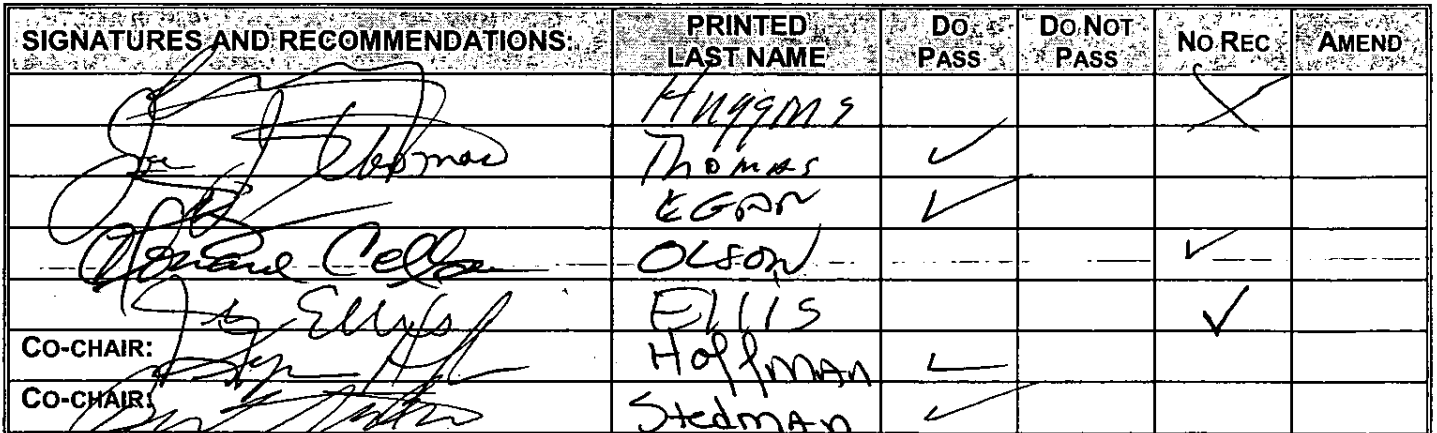 SIGNATURES AND RECOMMENDATIONS: PRINTED LAST NAME DO PASS DO NOT PASS NO REC AMEND
Huggins
Thomas Thomas
EGAN
Olson OLSON
Ellis ELLIS
CO-CHAIR: Hoffman
CO-CHAIR: Stedman